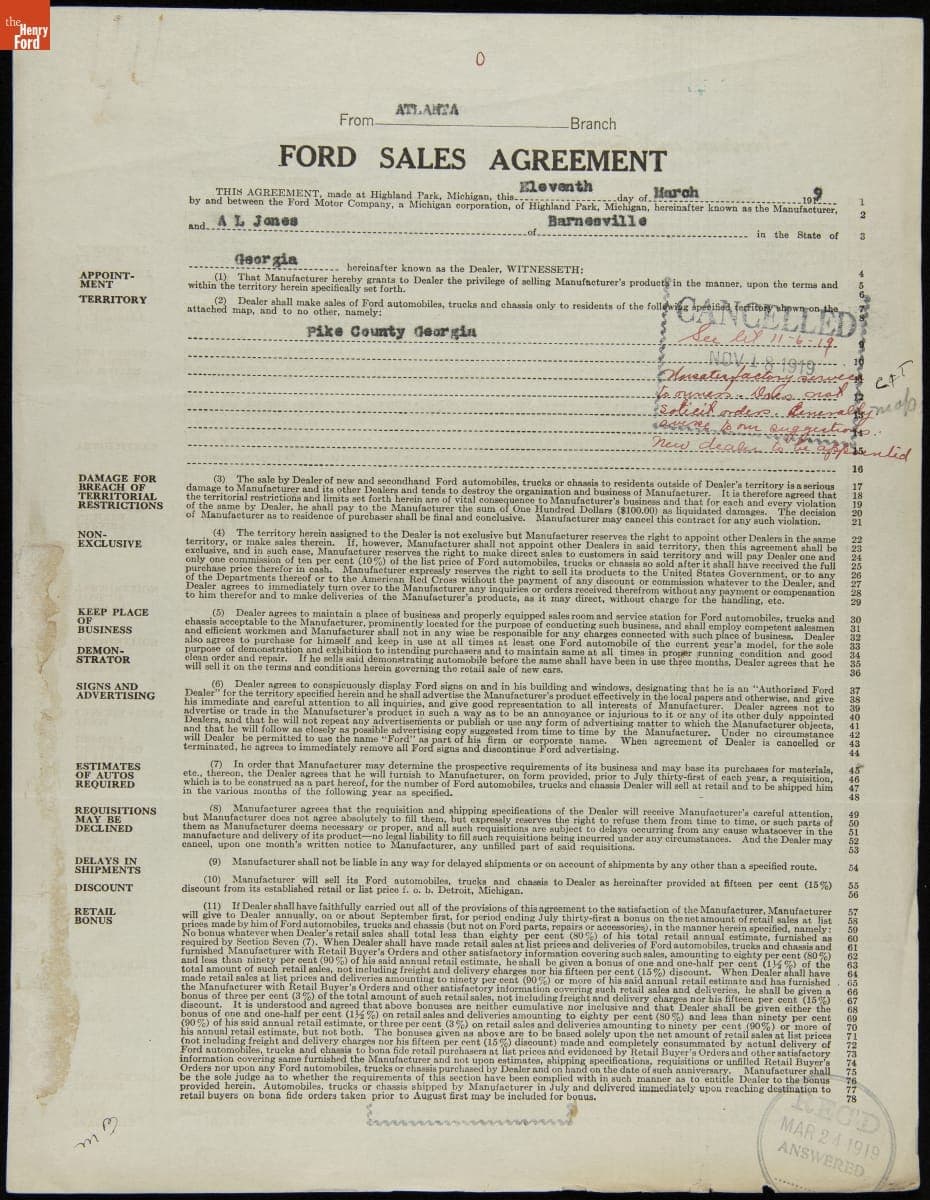 the
Henry
Ford
0
From ATLANTA Branch
FORD SALES AGREEMENT
THIS AGREEMENT, made at Highland Park, Michigan, this Eleventh day of March 1919 1
by and between the Ford Motor Company, a Michigan corporation, of Highland Park, Michigan, hereinafter known as the Manufacturer, 2
and A L Jones of Barnesville in the State of 3
Georgia hereinafter known as the Dealer, WITNESSETH: 4
APPOINT-
MENT
(1) That Manufacturer hereby grants to Dealer the privilege of selling Manufacturer's products in the manner, upon the terms and 5
within the territory herein specifically set forth. 6
TERRITORY
(2) Dealer shall make sales of Ford automobiles, trucks and chassis only to residents of the following specified territory shown on the 7
attached map, and to no other, namely: 8
Pike County Georgia 9
CANCELLED
See let 11-6-19.
10
NOV 18 1919
Unsatisfactory service 11
to owners. Does not 12
solicit orders. Generally 13
averse to our suggestions. 14
New dealer to be appointed 15
CFT
map
16
DAMAGE FOR
BREACH OF
TERRITORIAL
RESTRICTIONS
(3) The sale by Dealer of new and secondhand Ford automobiles, trucks or chassis to residents outside of Dealer's territory is a serious 17
damage to Manufacturer and its other Dealers and tends to destroy the organization and business of Manufacturer. It is therefore agreed that 18
the territorial restrictions and limits set forth herein are of vital consequence to Manufacturer's business and that for each and every violation 19
of the same by Dealer, he shall pay to the Manufacturer the sum of One Hundred Dollars ($100.00) as liquidated damages. The decision 20
of Manufacturer as to residence of purchaser shall be final and conclusive. Manufacturer may cancel this contract for any such violation. 21
NON-
EXCLUSIVE
(4) The territory herein assigned to the Dealer is not exclusive but Manufacturer reserves the right to appoint other Dealers in the same 22
territory, or make sales therein. If, however, Manufacturer shall not appoint other Dealers in said territory, then this agreement shall be 23
exclusive, and in such case, Manufacturer reserves the right to make direct sales to customers in said territory and will pay Dealer one and 24
only one commission of ten per cent (10%) of the list price of Ford automobiles, trucks or chassis so sold after it shall have received the full 25
purchase price therefor in cash. Manufacturer expressly reserves the right to sell its products to the United States Government, or to any 26
of the Departments thereof or to the American Red Cross without the payment of any discount or commission whatever to the Dealer, and 27
Dealer agrees to immediately turn over to the Manufacturer any inquiries or orders received therefrom without any payment or compensation 28
to him therefor and to make deliveries of the Manufacturer's products, as it may direct, without charge for the handling, etc. 29
KEEP PLACE
OF
BUSINESS
(5) Dealer agrees to maintain a place of business and properly equipped sales room and service station for Ford automobiles, trucks and 30
chassis acceptable to the Manufacturer, prominently located for the purpose of conducting such business, and shall employ competent salesmen 31
and efficient workmen and Manufacturer shall not in any wise be responsible for any charges connected with such place of business. Dealer 32
also agrees to purchase for himself and keep in use at all times at least one Ford automobile of the current year's model, for the sole 33
DEMON-
STRATOR
purpose of demonstration and exhibition to intending purchasers and to maintain same at all times in proper running condition and good 34
clean order and repair. If he sells said demonstrating automobile before the same shall have been in use three months, Dealer agrees that he 35
will sell it on the terms and conditions herein governing the retail sale of new cars. 36
SIGNS AND
ADVERTISING
(6) Dealer agrees to conspicuously display Ford signs on and in his building and windows, designating that he is an "Authorized Ford 37
Dealer" for the territory specified herein and he shall advertise the Manufacturer's product effectively in the local papers and otherwise, and give 38
his immediate and careful attention to all inquiries, and give good representation to all interests of Manufacturer. Dealer agrees not to 39
advertise or trade in the Manufacturer's product in such a way as to be an annoyance or injurious to it or any of its other duly appointed 40
Dealers, and that he will not repeat any advertisements or publish or use any form of advertising matter to which the Manufacturer objects, 41
and that he will follow as closely as possible advertising copy suggested from time to time by the Manufacturer. Under no circumstance 42
will Dealer be permitted to use the name "Ford" as part of his firm or corporate name. When agreement of Dealer is cancelled or 43
terminated, he agrees to immediately remove all Ford signs and discontinue Ford advertising. 44
ESTIMATES
OF AUTOS
REQUIRED
(7) In order that Manufacturer may determine the prospective requirements of its business and may base its purchases for materials, 45
etc., thereon, the Dealer agrees that he will furnish to Manufacturer, on form provided, prior to July thirty-first of each year, a requisition, 46
which is to be construed as a part hereof, for the number of Ford automobiles, trucks and chassis Dealer will sell at retail and to be shipped him 47
in the various months of the following year as specified. 48
REQUISITIONS
MAY BE
DECLINED
(8) Manufacturer agrees that the requisition and shipping specifications of the Dealer will receive Manufacturer's careful attention, 49
but Manufacturer does not agree absolutely to fill them, but expressly reserves the right to refuse them from time to time, or such parts of 50
them as Manufacturer deems necessary or proper, and all such requisitions are subject to delays occurring from any cause whatsoever in the 51
manufacture and delivery of its product—no legal liability to fill such requisitions being incurred under any circumstances. And the Dealer may 52
cancel, upon one month's written notice to Manufacturer, any unfilled part of said requisitions. 53
DELAYS IN
SHIPMENTS
(9) Manufacturer shall not be liable in any way for delayed shipments or on account of shipments by any other than a specified route. 54
DISCOUNT
(10) Manufacturer will sell its Ford automobiles, trucks and chassis to Dealer as hereinafter provided at fifteen per cent (15%) 55
discount from its established retail or list price f. o. b. Detroit, Michigan. 56
RETAIL
BONUS
(11) If Dealer shall have faithfully carried out all of the provisions of this agreement to the satisfaction of the Manufacturer, Manufacturer 57
will give to Dealer annually, on or about September first, for period ending July thirty-first a bonus on the net amount of retail sales at list 58
prices made by him of Ford automobiles, trucks and chassis (but not on Ford parts, repairs or accessories), in the manner herein specified, namely: 59
No bonus whatever when Dealer's retail sales shall total less than eighty per cent (80%) of his total retail annual estimate, furnished as 60
required by Section Seven (7). When Dealer shall have made retail sales at list prices and deliveries of Ford automobiles, trucks and chassis and 61
furnished Manufacturer with Retail Buyer's Orders and other satisfactory information covering such sales, amounting to eighty per cent (80%) 62
and less than ninety per cent (90%) of his said annual retail estimate, he shall be given a bonus of one and one-half per cent (1½%) of the 63
total amount of such retail sales, not including freight and delivery charges nor his fifteen per cent (15%) discount. When Dealer shall have 64
made retail sales at list prices and deliveries amounting to ninety per cent (90%) or more of his said annual retail estimate and has furnished 65
the Manufacturer with Retail Buyer's Orders and other satisfactory information covering such retail sales and deliveries, he shall be given a 66
bonus of three per cent (3%) of the total amount of such retail sales, not including freight and delivery charges nor his fifteen per cent (15%) 67
discount. It is understood and agreed that above bonuses are neither cumulative nor inclusive and that Dealer shall be given either the 68
bonus of one and one-half per cent (1½%) on retail sales and deliveries amounting to eighty per cent (80%) and less than ninety per cent 69
(90%) of his said annual retail estimate, or three per cent (3%) on retail sales and deliveries amounting to ninety per cent (90%) or more of 70
his annual retail estimate, but not both. The bonuses given as above are to be based solely upon the net amount of retail sales at list prices 71
(not including freight and delivery charges nor his fifteen per cent (15%) discount) made and completely consummated by actual delivery of 72
Ford automobiles, trucks and chassis to bona fide retail purchasers at list prices and evidenced by Retail Buyer's Orders and other satisfactory 73
information covering same furnished the Manufacturer and not upon estimates, shipping specifications, requisitions or unfilled Retail Buyer's 74
Orders nor upon any Ford automobiles, trucks or chassis purchased by Dealer and on hand on the date of such anniversary. Manufacturer shall 75
be the sole judge as to whether the requirements of this section have been complied with in such manner as to entitle Dealer to the bonus 76
provided herein. Automobiles, trucks or chassis shipped by Manufacturer in July and delivered immediately upon reaching destination to 77
retail buyers on bona fide orders taken prior to August first may be included for bonus. 78
REC'D
MAR 24 1919
ANSWERED